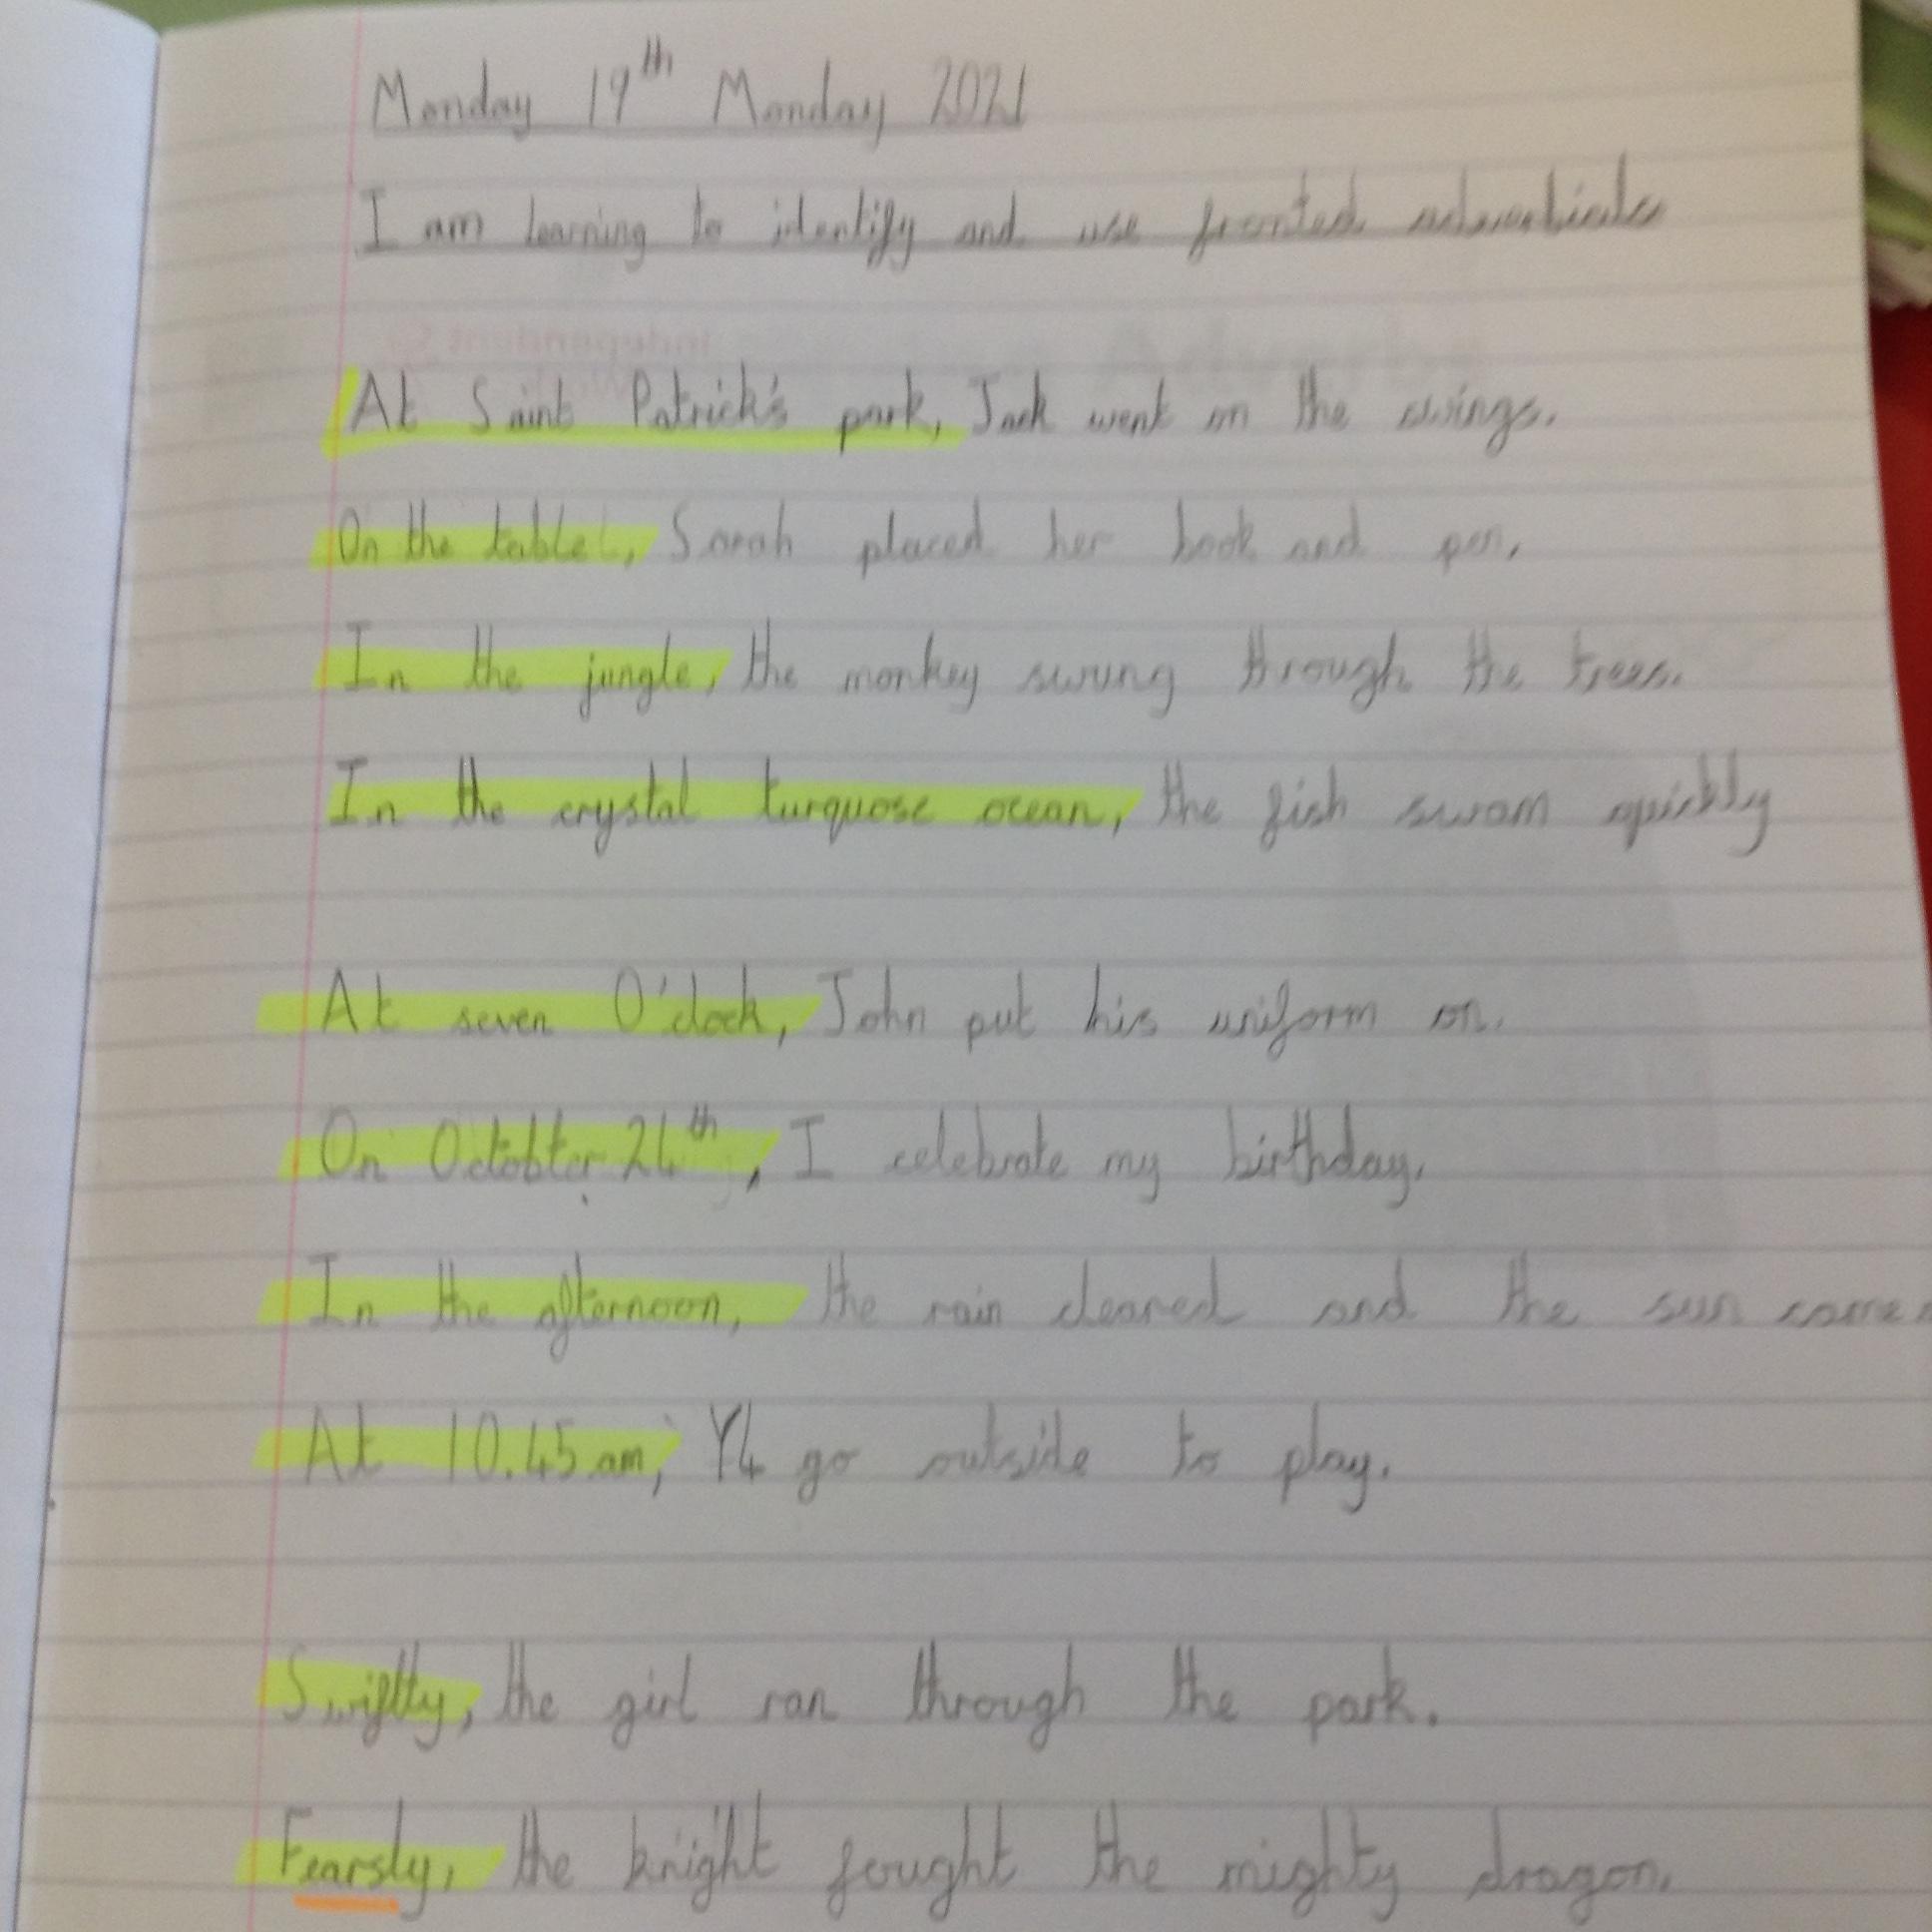 Monday 19th Monday 2021
I am learning to identify and use fronted adverbials
At Saint Patrick's park, Jack went on the swings.
On the table, Sarah placed her book and pen.
In the jungle, the monkey swung through the trees.
In the crystal turquose ocean, the fish swam quickly
At seven O'clock, John put his uniform on.
On Octobter 24th, I celebrate my birthday.
In the afternoon, the rain cleared and the sun came
At 10.45am, Y4 go outside to play.
Swiftly, the girl ran through the park.
Fearsly, the knight fought the mighty dragon.